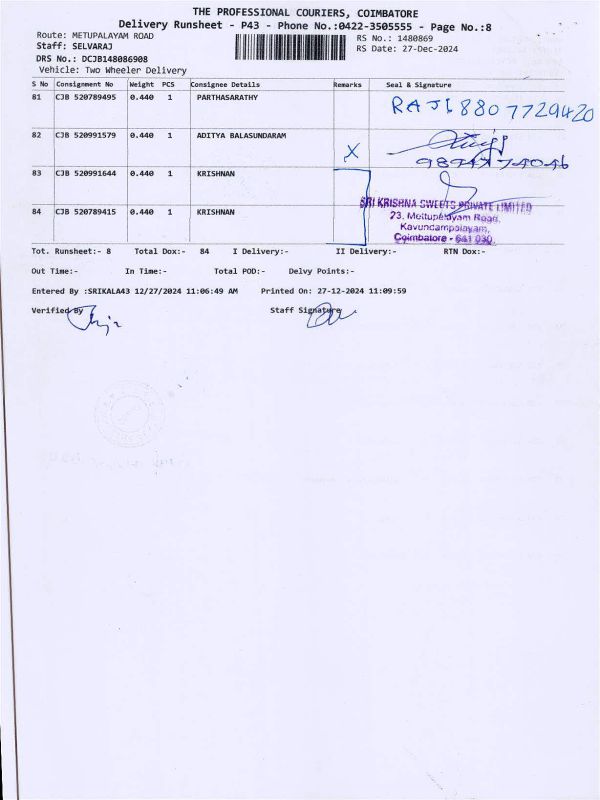 THE PROFESSIONAL COURIERS, COIMBATORE
Delivery Runsheet - P43 - Phone No.:0422-3505555 - Page No.:8
Route: METUPALAYAM ROAD
RS No.: 1480869
Staff: SELVARAJ
RS Date: 27-Dec-2024
DRS No.: DCJB148086908
Vehicle: Two Wheeler Delivery
S No Consignment No Weight PCS Consignee Details Remarks Seal & Signature
81 CJB 520789495 0.440 1 PARTHASARATHY RAJI 8807729420
82 CJB 520991579 0.440 1 ADITYA BALASUNDARAM X
83 CJB 520991644 0.440 1 KRISHNAN
84 CJB 520789415 0.440 1 KRISHNAN
SRI KRISHNA SWEETS PRIVATE LIMITED
23, Mettupalayam Road,
Kavundampalayam,
Coimbatore - 641 030.
Tot. Runsheet:- 8 Total Dox:- 84 I Delivery:- II Delivery:- RTN Dox:-
Out Time:- In Time:- Total POD:- Delvy Points:-
Entered By :SRIKALA43 12/27/2024 11:06:49 AM Printed On: 27-12-2024 11:09:59
Verified By Staff Signature